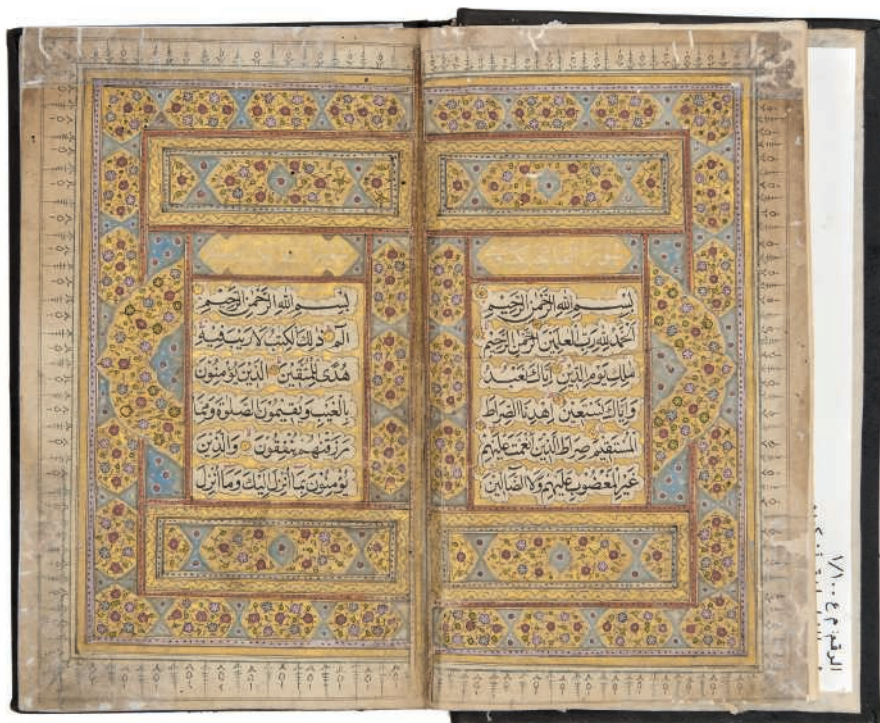 بِسْمِ اللهِ الرَّحْمٰنِ الرَّحِيْمِ
اَلْحَمْدُ لِلّٰهِ رَبِّ الْعٰلَمِيْنَ الرَّحْمٰنِ الرَّحِيْمِ
مٰلِكِ يَوْمِ الدِّيْنِ اِيَّاكَ نَعْبُدُ
وَاِيَّاكَ نَسْتَعِيْنُ اِهْدِنَا الصِّرَاطَ
الْمُسْتَقِيْمَ صِرَاطَ الَّذِيْنَ اَنْعَمْتَ عَلَيْهِمْ
غَيْرِ الْمَغْضُوْبِ عَلَيْهِمْ وَلَا الضَّآلِّيْنَ
بِسْمِ اللهِ الرَّحْمٰنِ الرَّحِيْمِ
الٓمٓ ذٰلِكَ الْكِتٰبُ لَا رَيْبَ فِيْهِ
هُدًى لِّلْمُتَّقِيْنَ الَّذِيْنَ يُؤْمِنُوْنَ
بِالْغَيْبِ وَيُقِيْمُوْنَ الصَّلٰوةَ وَمِمَّا
رَزَقْنٰهُمْ يُنْفِقُوْنَ وَالَّذِيْنَ
يُؤْمِنُوْنَ بِمَا اُنْزِلَ اِلَيْكَ وَمَا اُنْزِلَ
الرقم: م ع ١/١٠٠